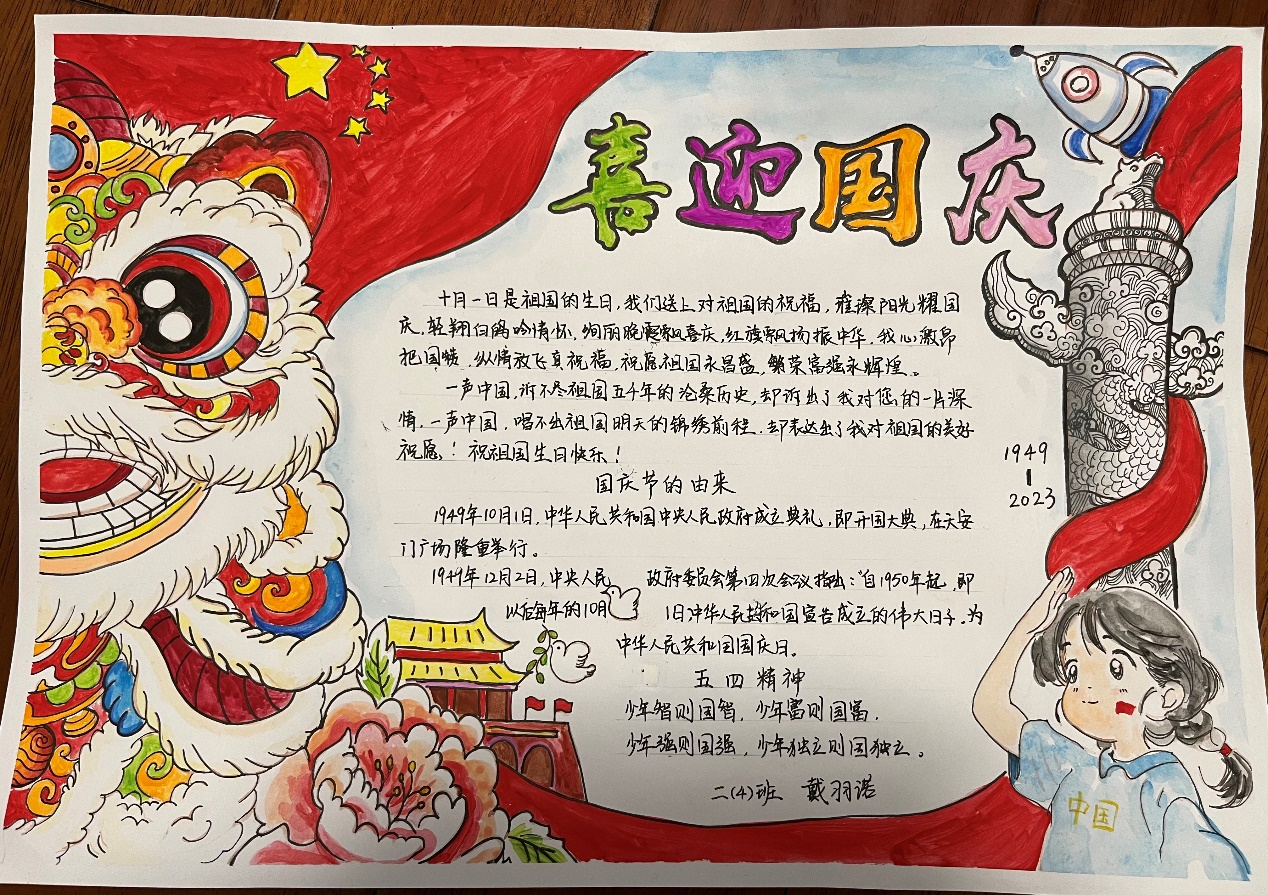 喜迎国庆
十月一日是祖国的生日，我们送上对祖国的祝福，璀璨阳光耀国
庆，轻翔白鸽吟情怀，绚丽晚霞飘喜庆，红旗飘扬振中华，我心激昂
把国赞，纵情放飞真祝福，祝愿祖国永昌盛，繁荣富强永辉煌。
一声中国，诉不尽祖国五千年的沧桑历史，却诉出了我对您的一片深
情，一声中国，唱不出祖国明天的锦绣前程，却表达出了我对祖国的美好
祝愿，！祝祖国生日快乐！
国庆节的由来
1949年10月1日，中华人民共和国中央人民政府成立典礼，即开国大典，在天安
门广场隆重举行。
1949年12月2日，中央人民 政府委员会第四次会议指出：“自1950年起，即
以后每年的10月 1日中华人民共和国宣告成立的伟大日子，为
中华人民共和国国庆日。
五四精神
少年智则国智，少年富则国富，
少年强则国强，少年独立则国独立。
二(4)班 戴羽诺
1949
-
2023
中国